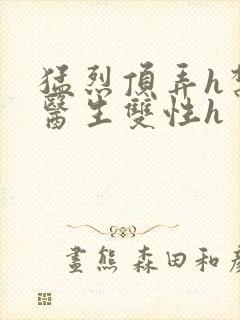 猛烈頂弄h
醫生雙性h
畫熊 森田和